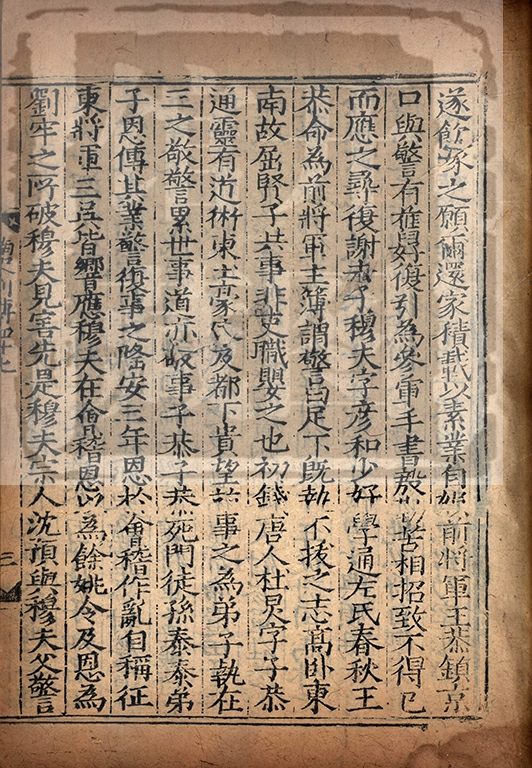 遂飲啄之願爾還家積載以素業自娛前將軍王恭鎮京
口與警有舊好復引為參軍手書殷勤苦相招致不得已
而應之尋復謝去子穆夫字彥和少好學通左氏春秋王
恭命為前將軍主簿謂警曰足下既執不拔之志高卧東
南故屈賢子共事非吏職嬰之也初錢唐人杜炅字子恭
通靈有道術東土豪家及都下貴望並事之為弟子執在
三之敬警累世事道亦敬事子恭子恭死門徒孫泰泰弟
子恩傳其業警復事之隆安三年恩於會稽作亂自稱征
東將軍三吳皆響應穆夫在會稽恩以為餘姚令及恩為
劉牢之所破穆夫見害先是穆夫宗人沈預與穆夫父警
三